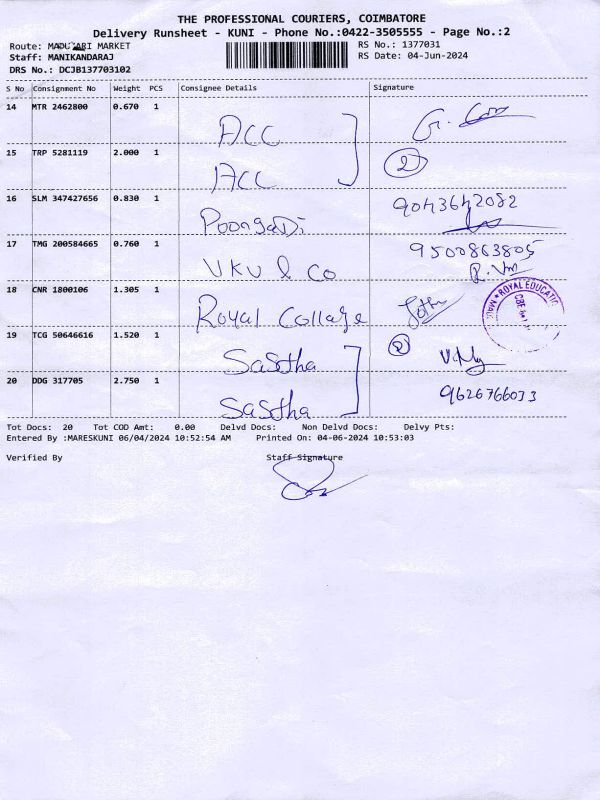 THE PROFESSIONAL COURIERS, COIMBATORE
Delivery Runsheet - KUNI - Phone No.:0422-3505555 - Page No.:2
Route: MARKET
RS No.: 1377031
Staff: MANIKANDARAJ
RS Date: 04-Jun-2024
DRS No.: DCJB137703102
S No Consignment No Weight PCS Consignee Details Signature
14 MTR 2462800 0.670 1 ACC
15 TRP 5281119 2.000 1 ACC 2
16 SLM 347427656 0.830 1 PoongaDi 9043642082
17 TMG 200584665 0.760 1 VKV & Co 9500863805
18 CNR 1800106 1.305 1 Royal Collage ROYAL EDUCATIO
19 TCG 50646616 1.520 1 Sasstha 2
20 DDG 317705 2.750 1 Sasstha 9626766033
Tot Docs: 20 Tot COD Amt: 0.00 Delvd Docs: Non Delvd Docs: Delvy Pts:
Entered By :MARESKUNI 06/04/2024 10:52:54 AM Printed On: 04-06-2024 10:53:03
Verified By Staff Signature